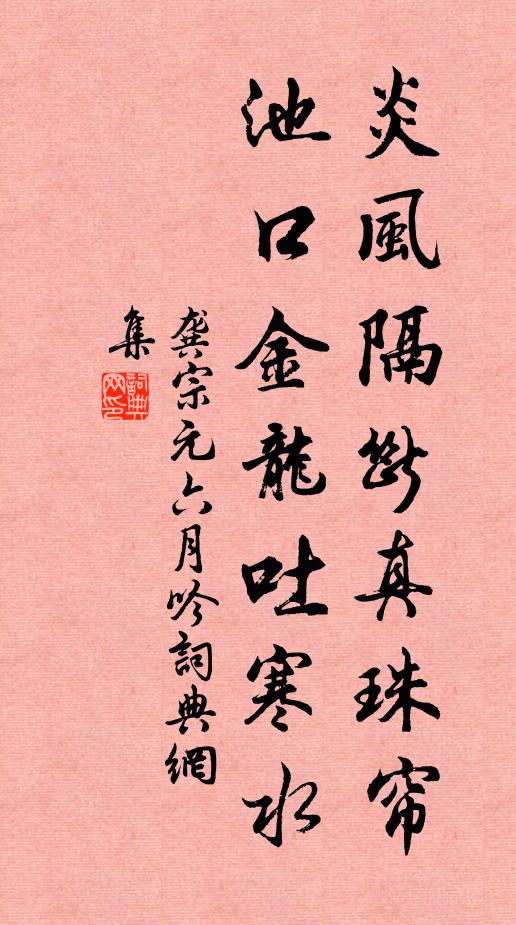 炎風隔斷真珠帘
池口金龍吐寒水
龚宗元六月吟詞典網
集
詞典
网印